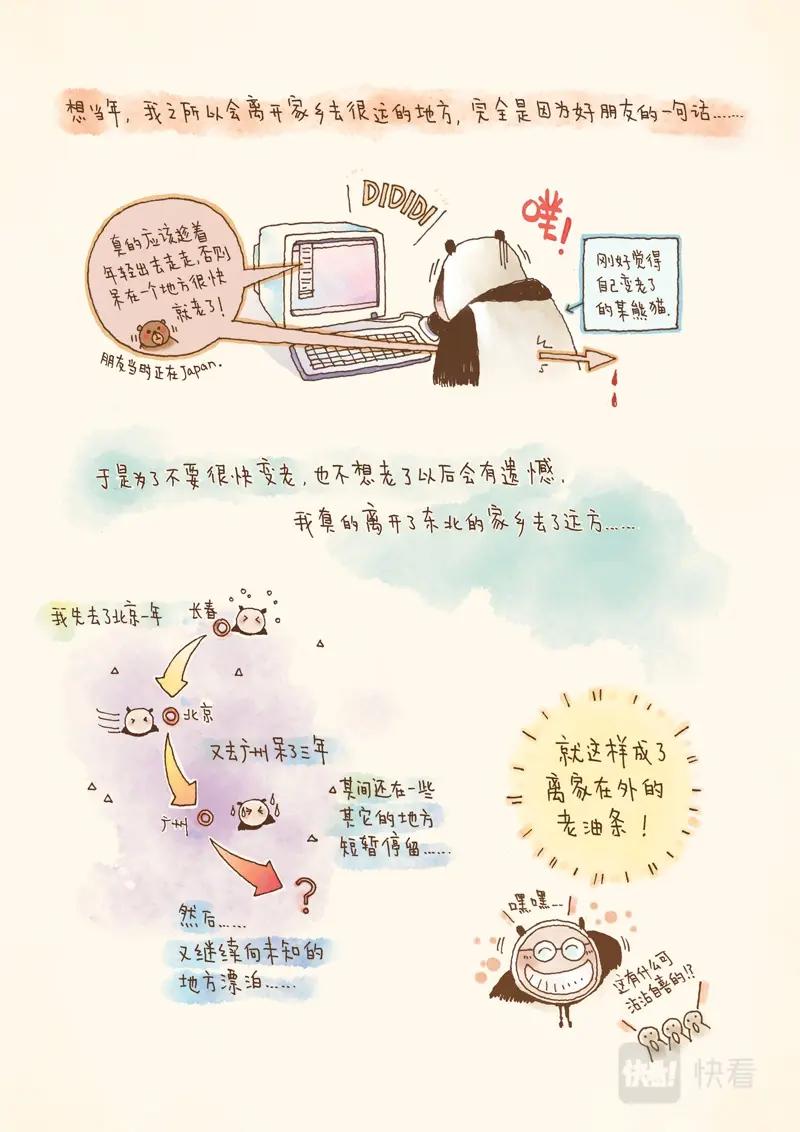 想当年，我之所以会离开家乡去很远的地方，完全是因为好朋友的一句话……
DIDIDI
噗！
真的应该趁着
年轻出去走走，否则
呆在一个地方很快
就老了！
朋友当时正在Japan.
刚好觉得
自己变老了
的某熊猫.
于是为了不要很快变老，也不想老了以后会有遗憾.
我真的离开了东北的家乡去了远方……
我先去了北京一年
长春
北京
又去广州呆了三年
广州
其间还在一些
其它的地方
短暂停留……
?
然后……
又继续向未知的
地方漂泊……
就这样成了
离家在外的
老油条！
嘿嘿…
这有什么可
沾沾自喜的!?
快看!
快看